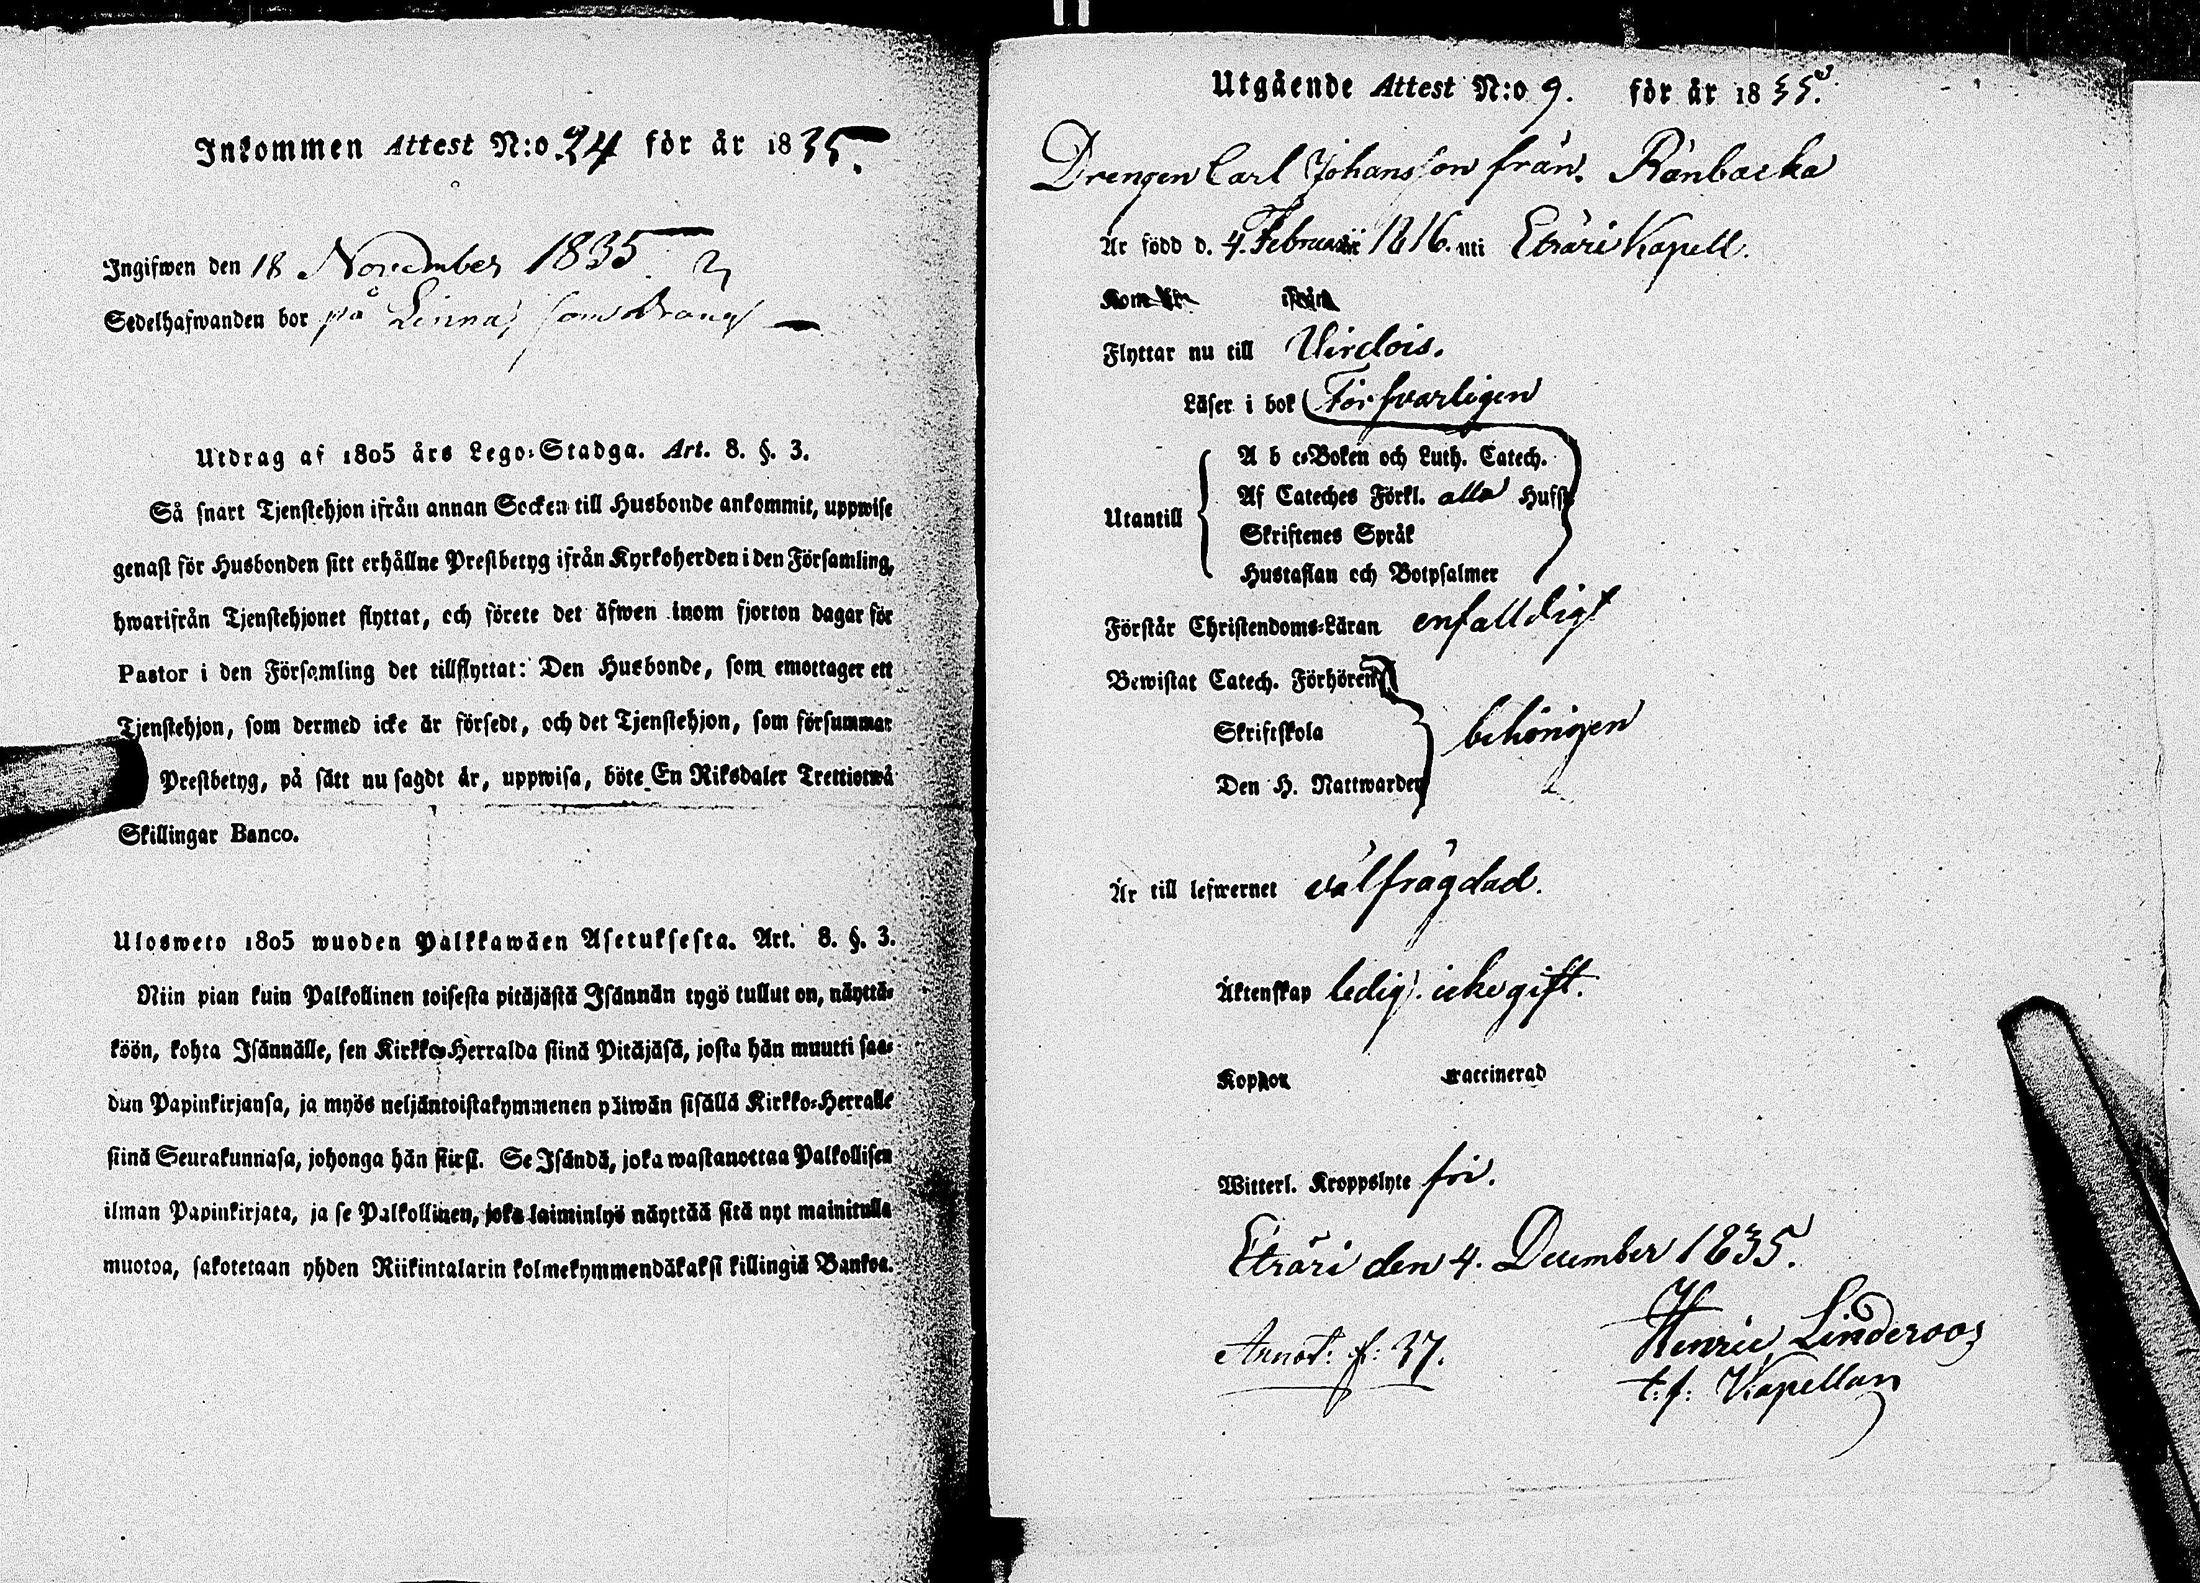 Inkommen Attest N:o 34 för år 1835.
Ingifwen den 18 November 1835.
Sedelhafwanden bor på Linna, som dräng
Utdrag af 1805 års Lego-Stadga. Art. 8. §. 3.
Så snart Tjenstehjon ifrån annan Socken till Husbonde ankommit, uppwise
genast för Husbonden sitt erhållne Prestbetyg ifrån Kyrkoherden i den Församling,
hwarifrån Tjenstehjonet flyttat, och förete det äfwen inom fjorton dagar för
Pastor i den Församling det tillflyttat: Den Husbonde, som emottager ett
Tjenstehjon, som dermed icke är försedt, och det Tjenstehjon, som försummar
Prestbetyg, på sätt nu sagdt är, uppwisa, böte En Riksdaler Trettiotwå
Skillingar Banco.
Ulosweto 1805 wuoden Palkkawäen Asetuksesta. Art. 8. §. 3.
Niin pian kuin Palkollinen toisesta pitäjästä Isännän tygö tullut on, näyttä-
köön, kohta Isännälle, sen Kirkko-Herralda siinä Pitäjäsä, josta hän muutti saa-
dun Papinkirjansa, ja myös neljäntoistakymmenen päiwän sisällä Kirkko-Herralle
siinä Seurakunnasa, johonga hän siirsi. Se Isändä, joka wastanottaa Palkollisen
ilman Papinkirjata, ja se Palkollinen, joka laiminlyö näyttää sitä nyt mainitulla
muotoa, sakotetaan yhden Riikintalarin kolmekymmendäkaksi killingiä Bankoa.
Utgående Attest N:o 9. för år 1835.
Drengen Carl Johansson från Ränbacka
Är född d. 4. Februarii 1816. uti Etsäri Kapell.
Kom ifrån
Flyttar nu till Virdois.
Läser i bok Försvarligen
A b c-Boken och Luth. Catech.
Af Cateches Förkl. alla Hufst.
Utantill
Skriftenes Språk
Hustaflan och Botpsalmer
Förstår Christendoms-Läran enfalldigt
Bewistat Catech. Förhören
Skriftskola behörigen
Den H. Nattwarden
Är till lefwernet välfrägdad.
Äktenskap ledig. icke gift.
Koppor vaccinerad
Witterl. Kroppslyte fri.
Etsäri den 4. December 1835.
Henric Linderoos
Annot: f: 37.
t.f. Kapellan